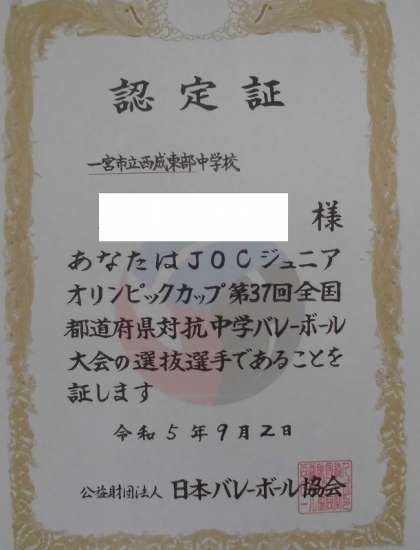 認定証
一宮市立西成東部中学校
様
あなたはJOCジュニア
オリンピックカップ第37回全国
都道府県対抗中学バレーボール
大会の選抜選手であることを
証します
令和5年9月2日
公益財団法人 日本バレーボール協会